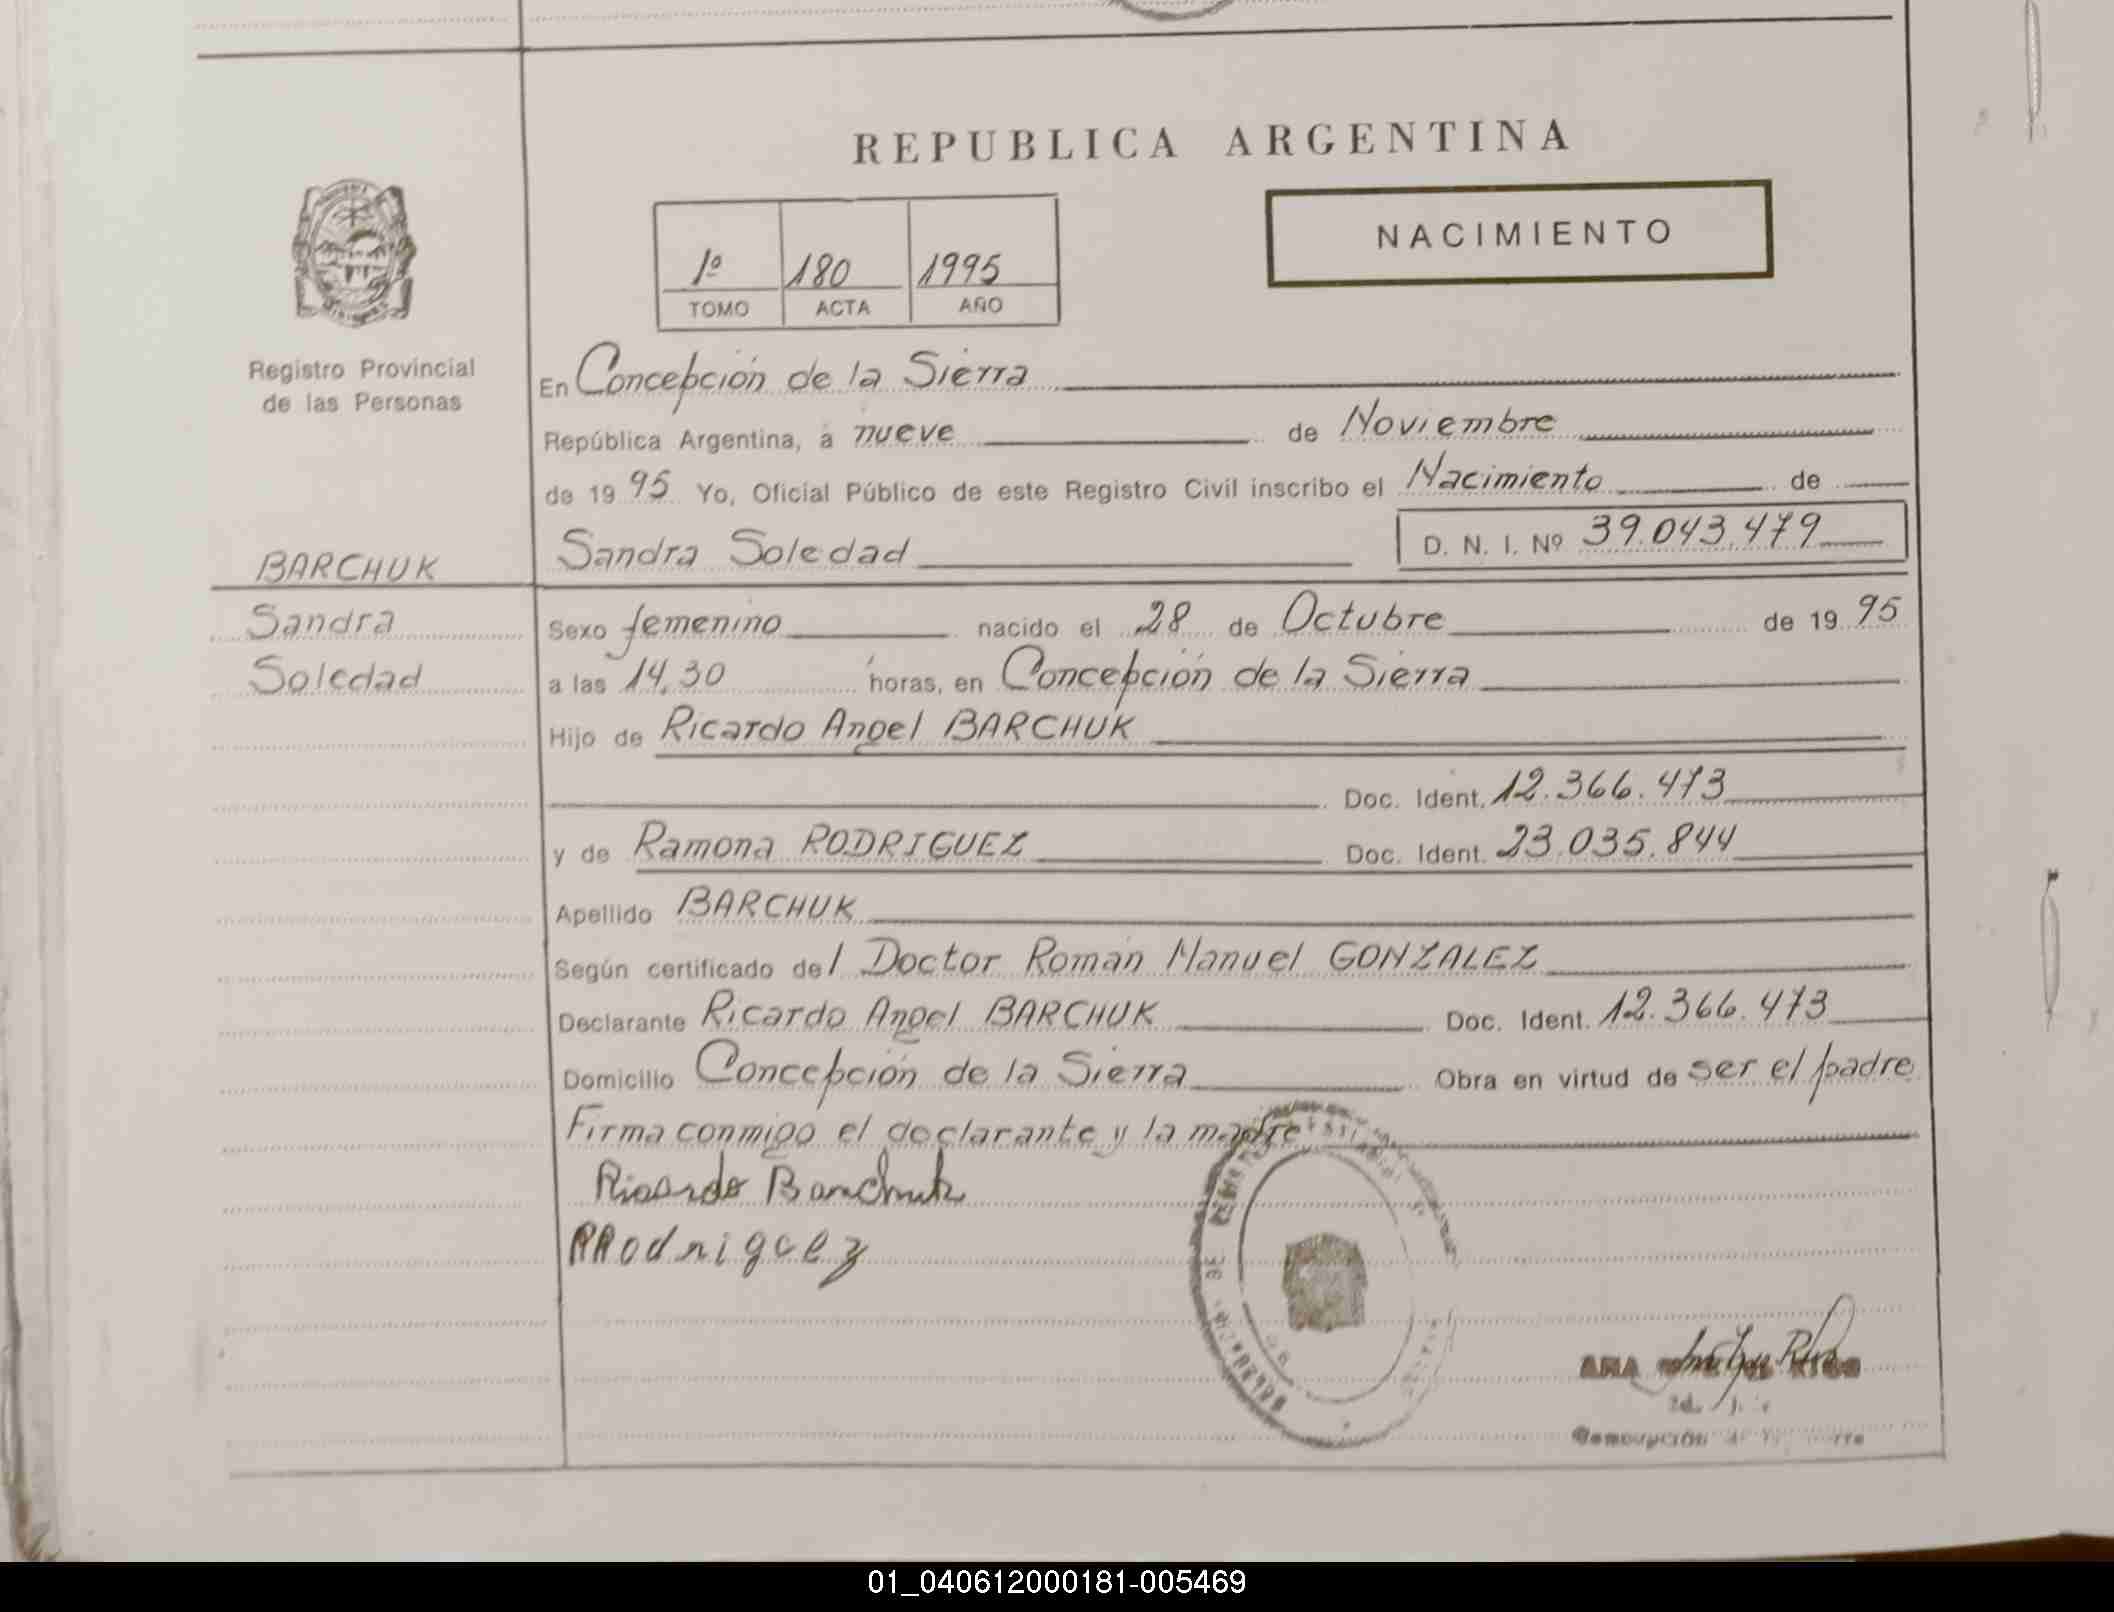 REPUBLICA ARGENTINA
NACIMIENTO
1º 180 1995
TOMO ACTA AÑO
Registro Provincial
de las Personas
En Concepción de la Sierra
República Argentina, a nueve de Noviembre
de 19 95 Yo, Oficial Público de este Registro Civil inscribo el Nacimiento de
BARCHUK
Sandra Soledad D. N. I. Nº 39.043.479
Sandra
Soledad
Sexo femenino nacido el 28 de Octubre de 19 95
a las 14,30 horas, en Concepción de la Sierra
Hijo de Ricardo Angel BARCHUK
Doc. Ident. 12.366.473
y de Ramona RODRIGUEZ Doc. Ident. 23.035.844
Apellido BARCHUK
Según certificado del Doctor Román Manuel GONZALEZ
Declarante Ricardo Angel BARCHUK Doc. Ident. 12.366.473
Domicilio Concepción de la Sierra Obra en virtud de ser el padre
Firma conmigo el declarante y la madre
Ricardo Barchuk
RRodriguez
ANA
01_040612000181-005469